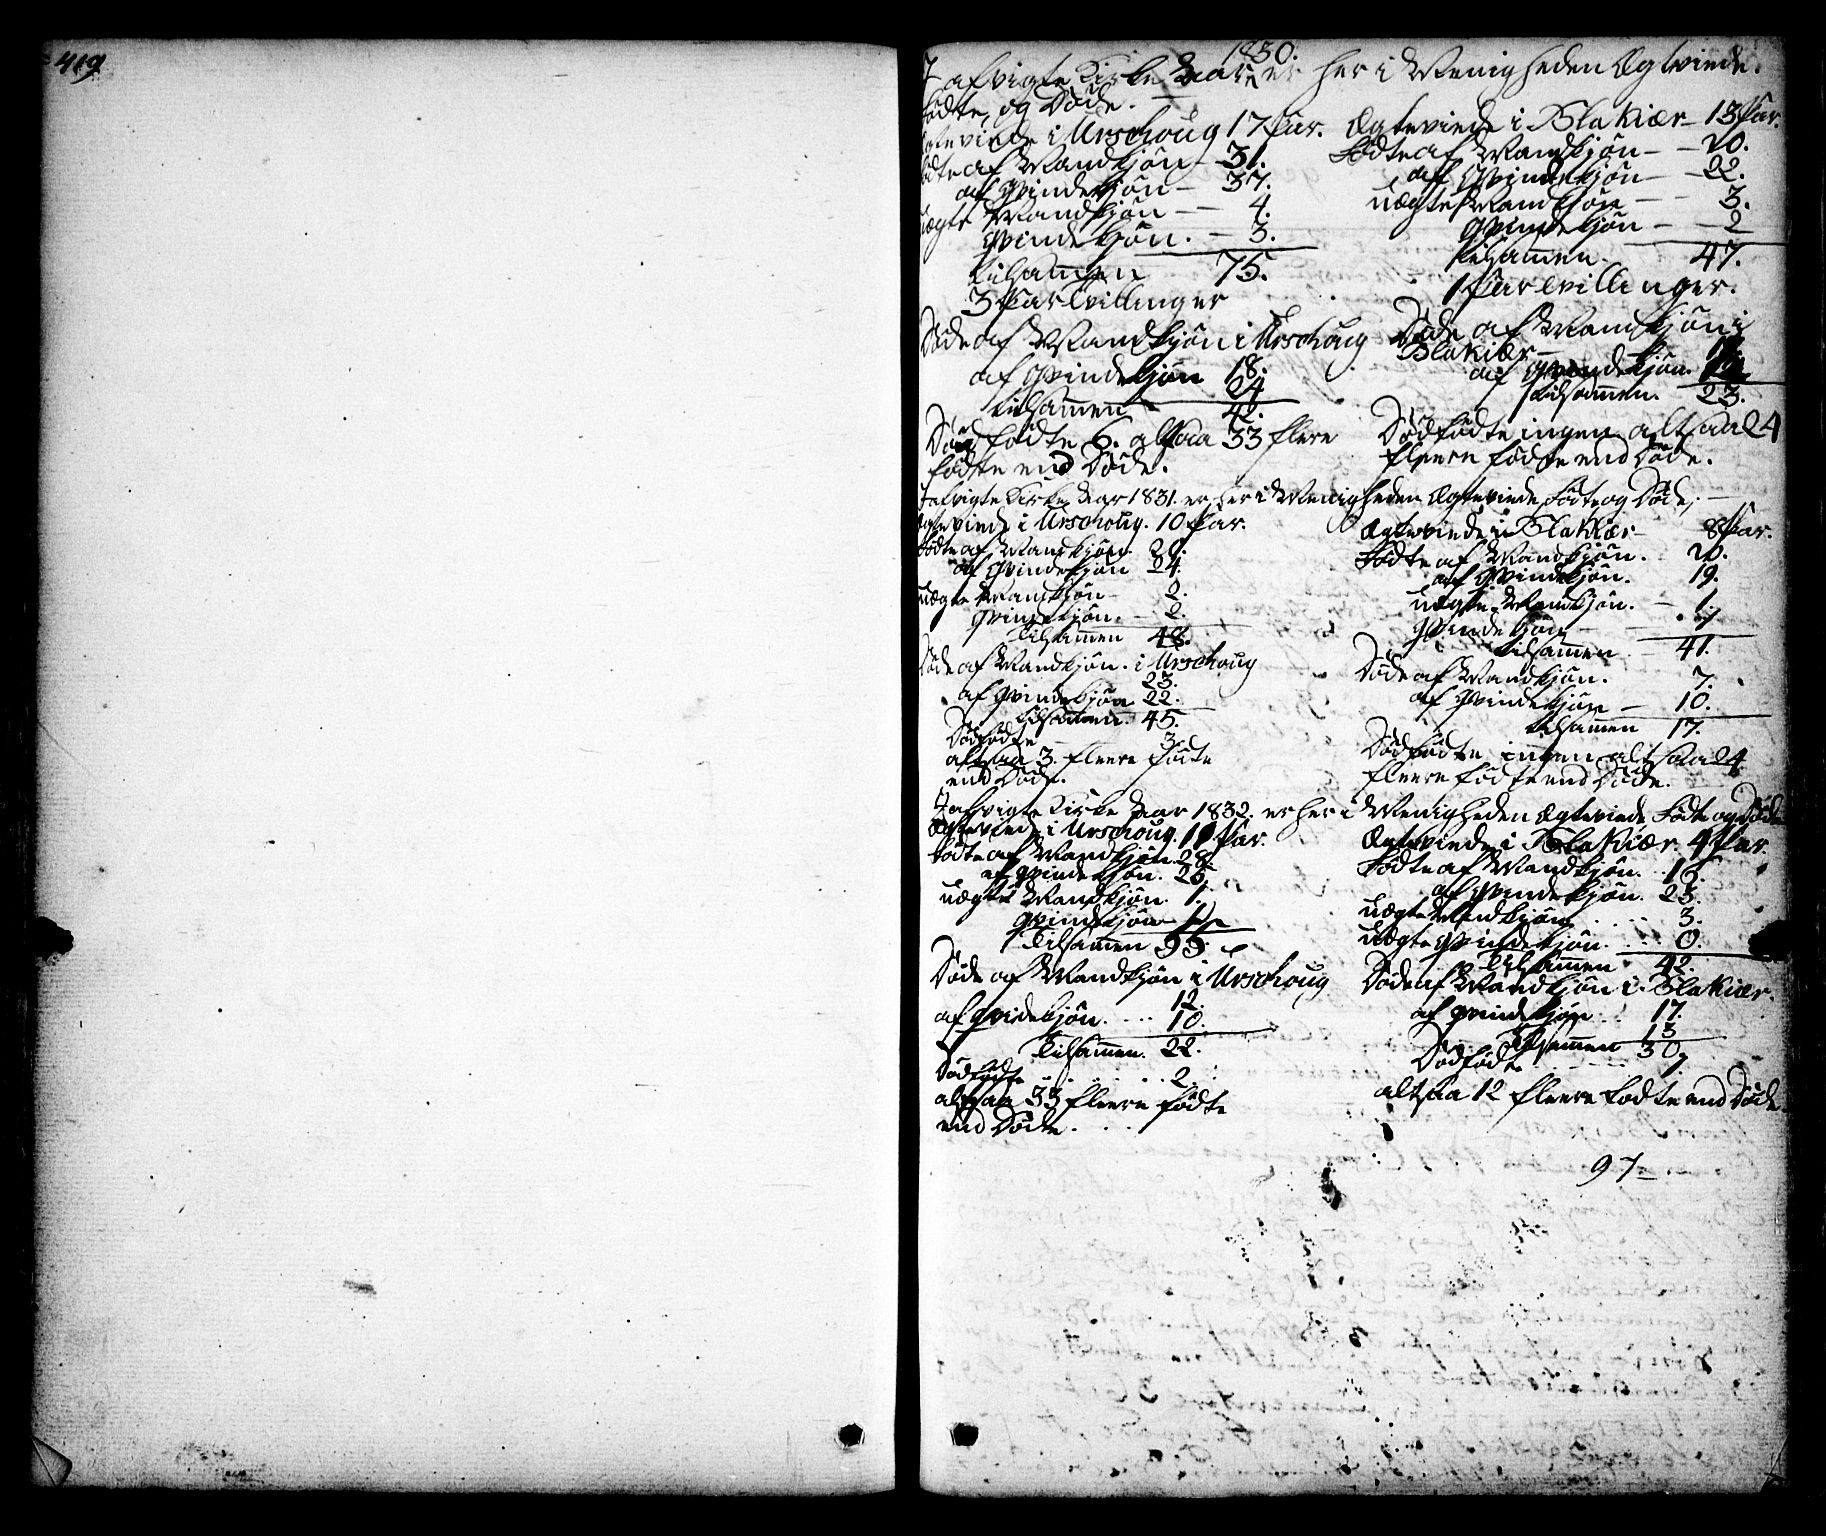 419
1830.
I afvigte Kirke Aar er her i Menigheden Ægtviede
fødte, og Døde.
Ægteviede i Urschoug 17 Par.
fødte af Mandkjøn - 31.
af Qvindekjøn - 37.
uægte Mandkjøn - 4.
Qvindekjøn. - 3.
Tilsamen 75.
3 Par Tvillinger
Døde af Mandkjøn i Urschoug
18.
af Qvindekjøn 24
Tilsamen 42.
Dødfødte 6. altsaa 33 flere
fødte end Døde.
Ægteviede i Blakiær - 13 Par.
Fødte af Mandkjøn - 20.
af Qvindekjøn - 22.
uægte Mandkjøn - 3.
Qvindekjøn - 2
Tilsamen. 47.
1 Par Tvillinger.
Døde af Mandkjøn i
Blakiær -
af Qvindekjøn.
Tilsammen. 23.
Dødfødte ingen altsaa 24
fleere fødte end Døde.
I afvigte Kirke Aar 1831. er her i Menigheden Ægteviede, Fødte og Døde,
Ægteviede i Urschoug. 10 Par.
Fødte af Mandkjøn. 20.
af Qvindekjøn 24.
uægte Mandkjøn - 2.
Qvindekjøn. - 2.
Tilsamen 48.
Døde af Mandkjøn. i Urschoug
23.
af Qvindekjøn 22.
Tilsamen. 45.
Dødfødte - 3.
altsaa 3. fleere fødte
end Døde.
Ægteviede i Blakiær - 8 Par.
Fødte af Mandkjøn. 20.
af Qvindekjøn. 19.
uægte Mandkjøn. - 1.
Qvindekjøn
Tilsamen - 41.
Døde af Mandkjøn. 7.
af Qvindekjøn - 10.
Tilsamen 17.
Dødfødte ingen altsaa 24
fleere fødte end Døde.
I afvigte Kirke Aar 1832. er her i Menigheden Ægteviede Fødte og Døde
Ægteviede i Urschoug. 11 Par.
Fødte af Mandkjøn. 28.
af Qvindekjøn. 25.
uægte Mandkjøn. 1.
Qvindekjøn 1
Tilsamen 55.
Døde af Mandkjøn i Urschoug
12.
af Qvindekjøn. 10.
Tilsamen. 22.
Dødfødte 2.
altsaa 33 fleere fødte
end Døde.
Ægteviede i Blakiær. 9 Par.
Fødte af Mandkjøn. 16.
af Qvindekjøn. 23.
uægte Mandkjøn 3.
uægte Qvindekjøn. 0.
Tilsamen 42.
Døde af Mandkjøn i Blakiær.
17.
af Qvindekjøn 13
Tilsamen 30
Dødfødte
altsaa 12 fleere Fødte end Døde
97